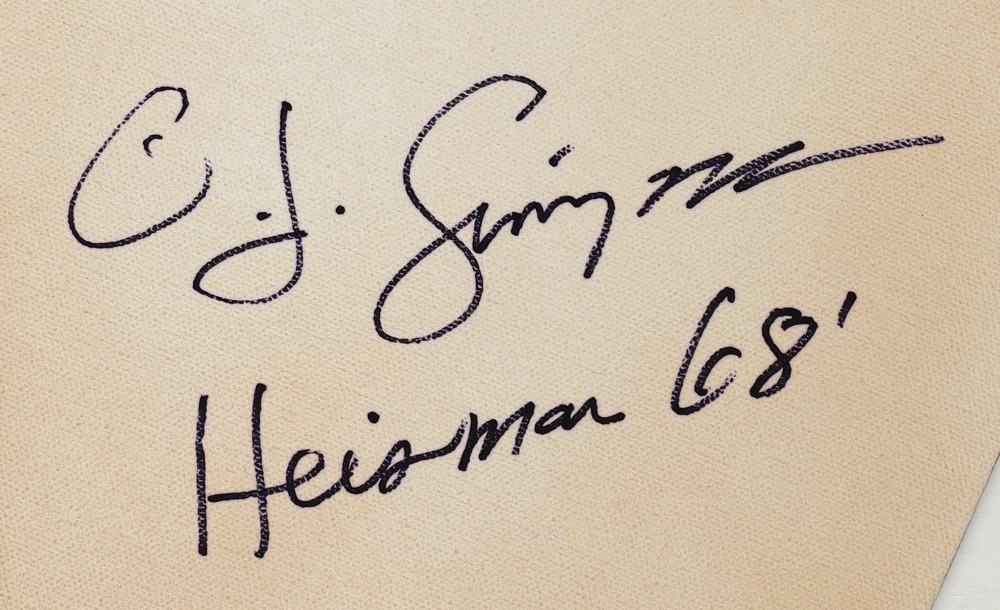 O.J. Simpson
Heisman 68'